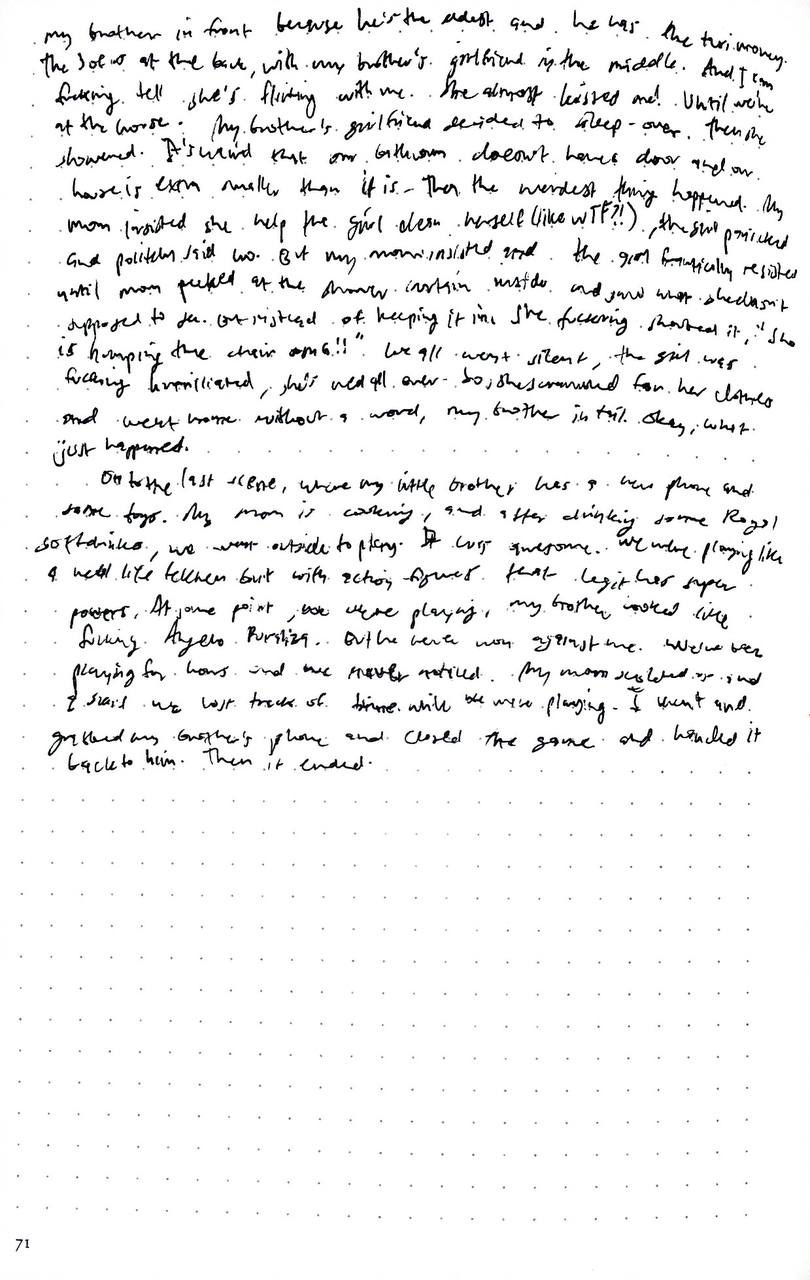 my brother in front because he's the eldest and he has the taxi money.
The 3 of us at the back, with my brother's girlfriend in the middle. And I can
fucking tell she's flirting with me. She almost kissed me! Until we're
at the house. My brother's girlfriend decided to sleep-over. Then she
showered. It's weird that our bathroom doesn't have a door and our
house is even smaller than it is. Then the weirdest thing happened. My
mom insisted she help the girl clean herself (like WTF?!), the girl panicked
and politely said no. But my mom insisted and the girl frantically resisted
until mom peeked at the shower curtain inside and saw what she wasn't
supposed to see. But instead of keeping it in, she fucking shouted it, "She
is humping the chair arms!!" We all went silent, the girl was
fucking humiliated, she's red all over. So, she scrammed for her clothes
and went home without a word, my brother in tail. Okay, what
just happened.
On to the last scene, where my little brother has a new phone and
some toys. My mom is cooking, and after drinking some Royal
softdrinks, we went outside to play. It was awesome. We were playing like
a real life tekken but with action figures that legit has super
powers. At some point, we were playing, my brother looked like
fucking Angelo. But he never won against me. We've been
playing for hours and we never noticed. My mom scolded us and
I said we lost track of time while we were playing. I went and
grabbed my brother's phone and closed the game and handed it
back to him. Then it ended.
71